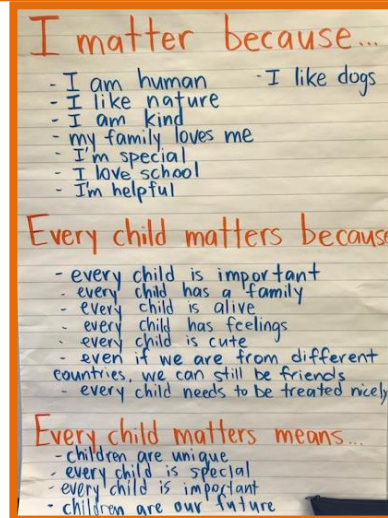 I matter because...
- I am human
- I like dogs
- I like nature
- I am kind
- my family loves me
- I'm special
- I love school
- I'm helpful
Every child matters because
- every child is important
- every child has a family
- every child is alive
- every child has feelings
- every child is cute
- even if we are from different
countries, we can still be friends
- every child needs to be treated nicely
Every child matters means...
- children are unique
- every child is special
- every child is important
- children are our future